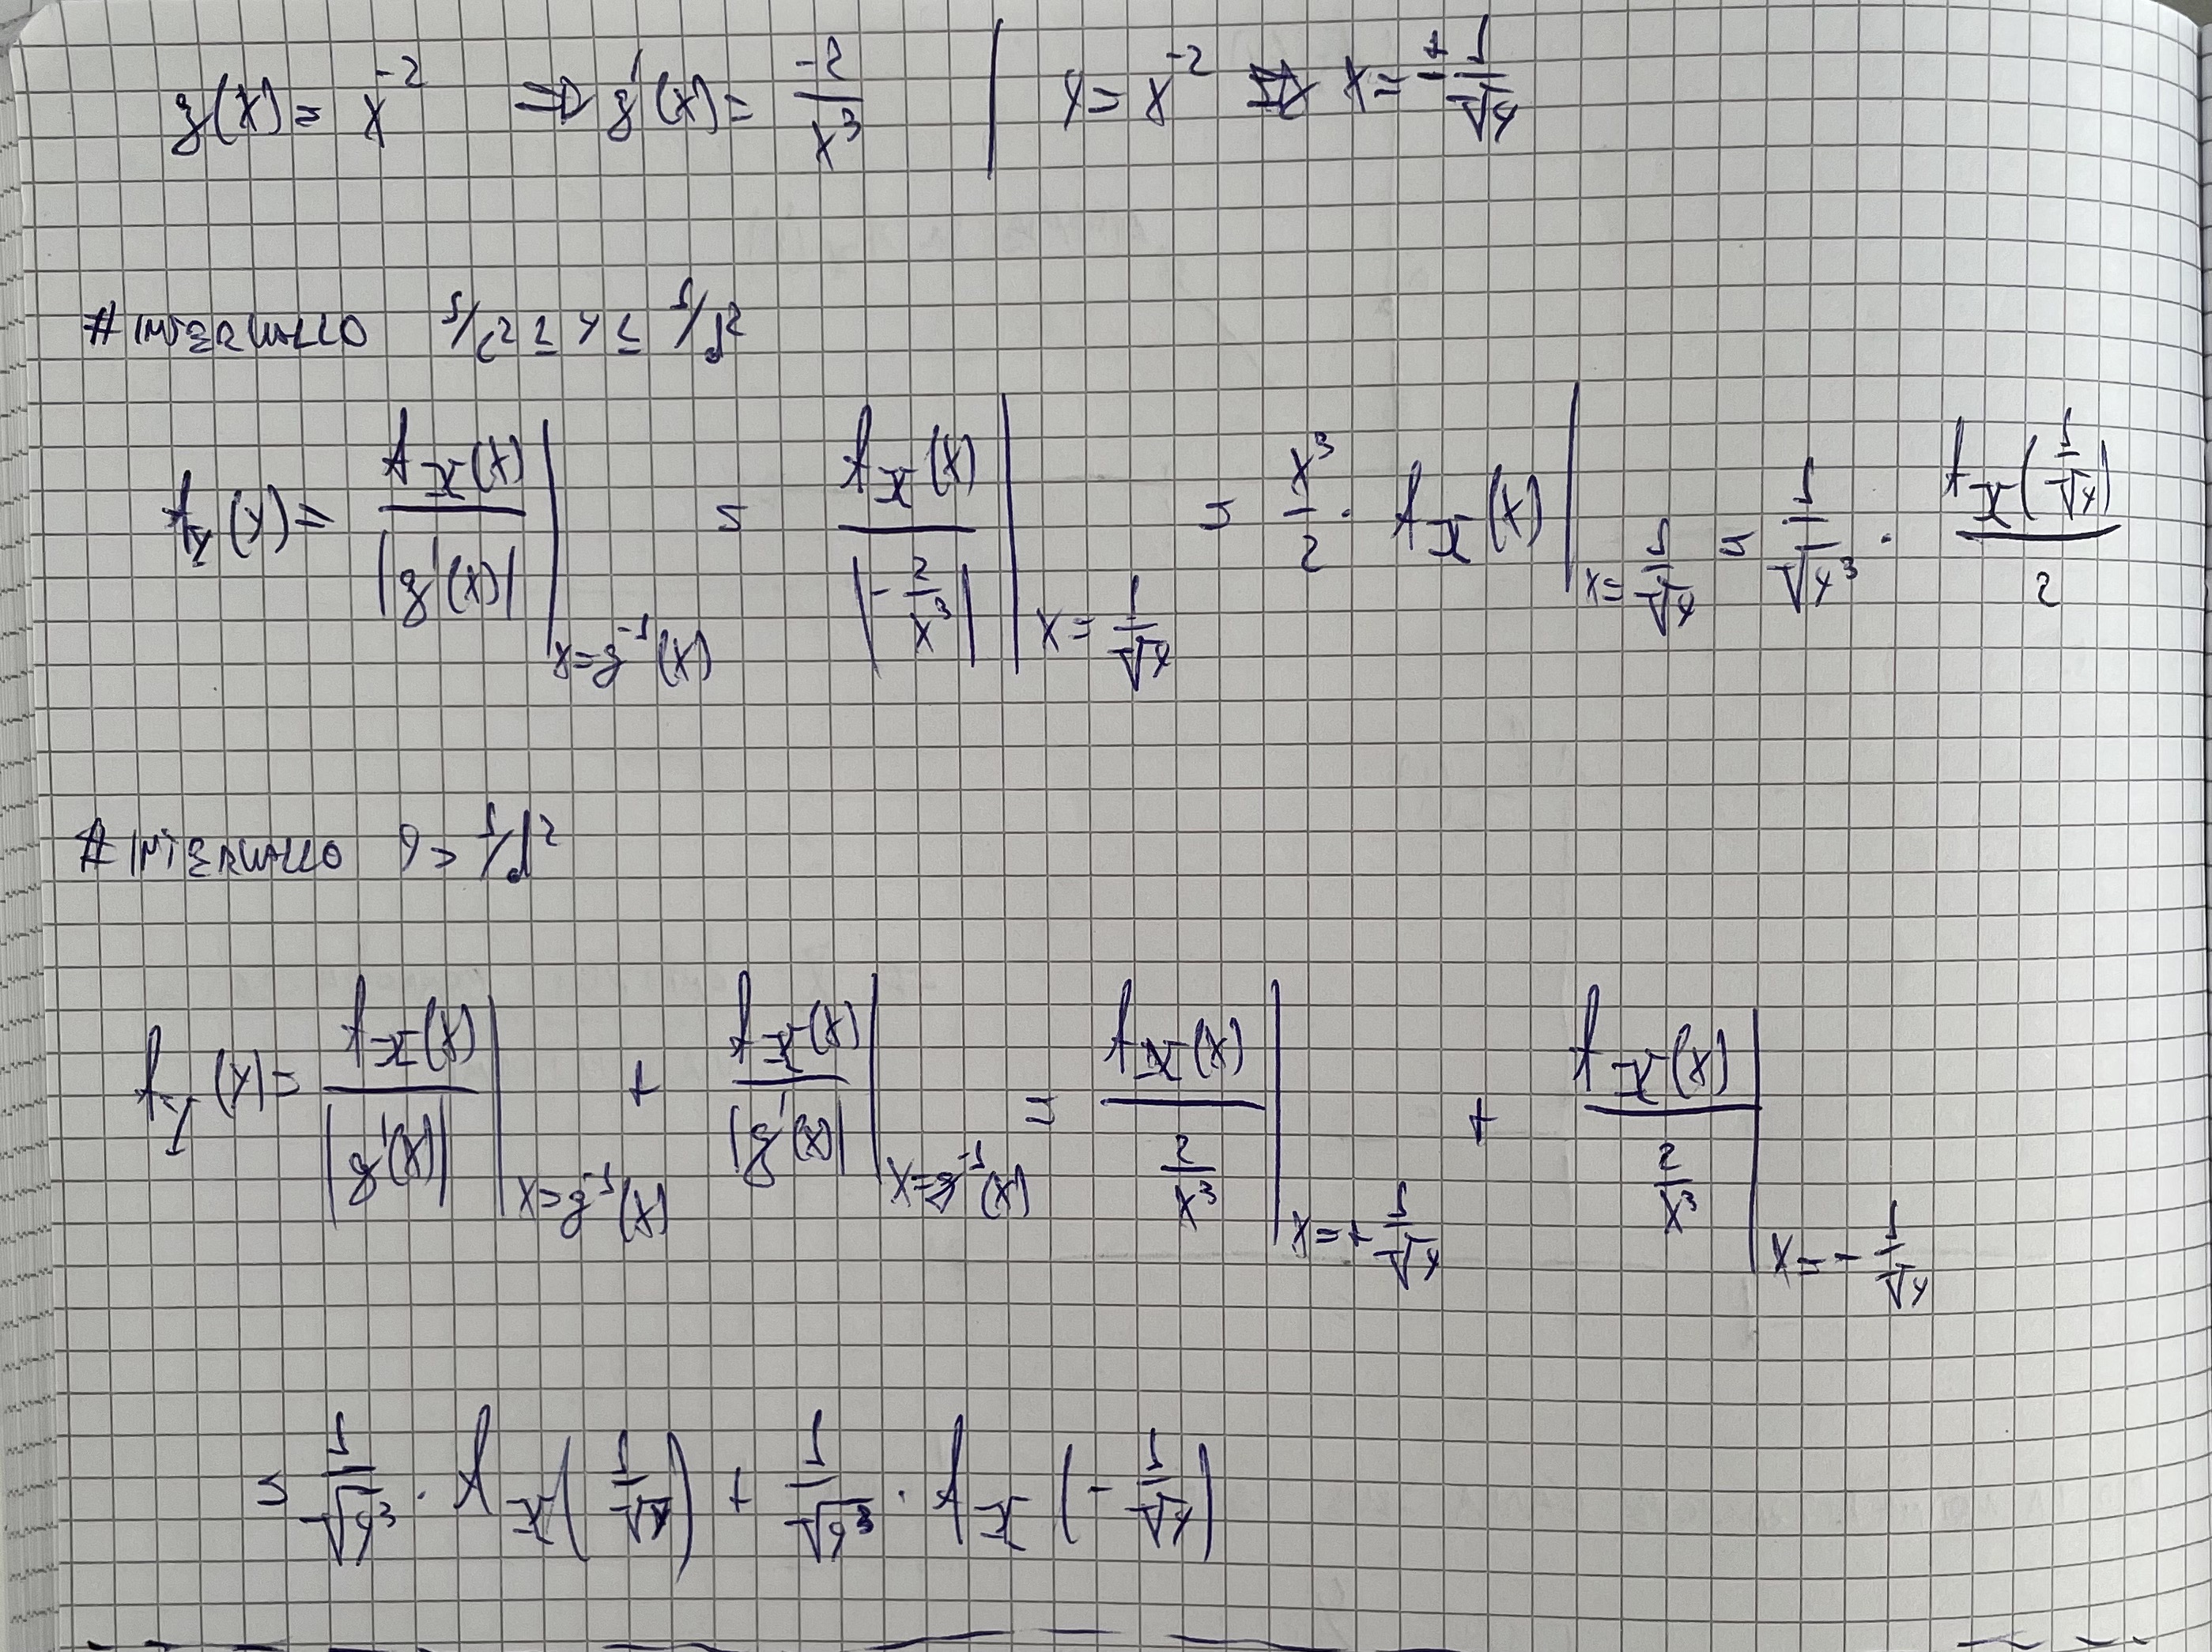 g(x) = x^-2 => g'(x) = -2/x^3 | y = x^-2 => x = ± 1/√y
# INTERVALLO 1/c^2 ≤ y ≤ 1/d^2
f_Y(y) = f_X(x)/|g'(x)| |_{x=g^-1(x)} = f_X(x)/|-2/x^3| |_{x=1/√y} = x^3/2 · f_X(x) |_{x=1/√y} = 1/√y^3 · f_X(1/√y)/2
# INTERVALLO y > 1/d^2
f_Y(y) = f_X(x)/|g'(x)| |_{x=g^-1(x)} + f_X(x)/|g'(x)| |_{x=g^-1(x)} = f_X(x)/(2/x^3) |_{x=+1/√y} + f_X(x)/(2/x^3) |_{x=-1/√y}
= 1/√y^3 · f_X(1/√y) + 1/√y^3 · f_X(-1/√y)